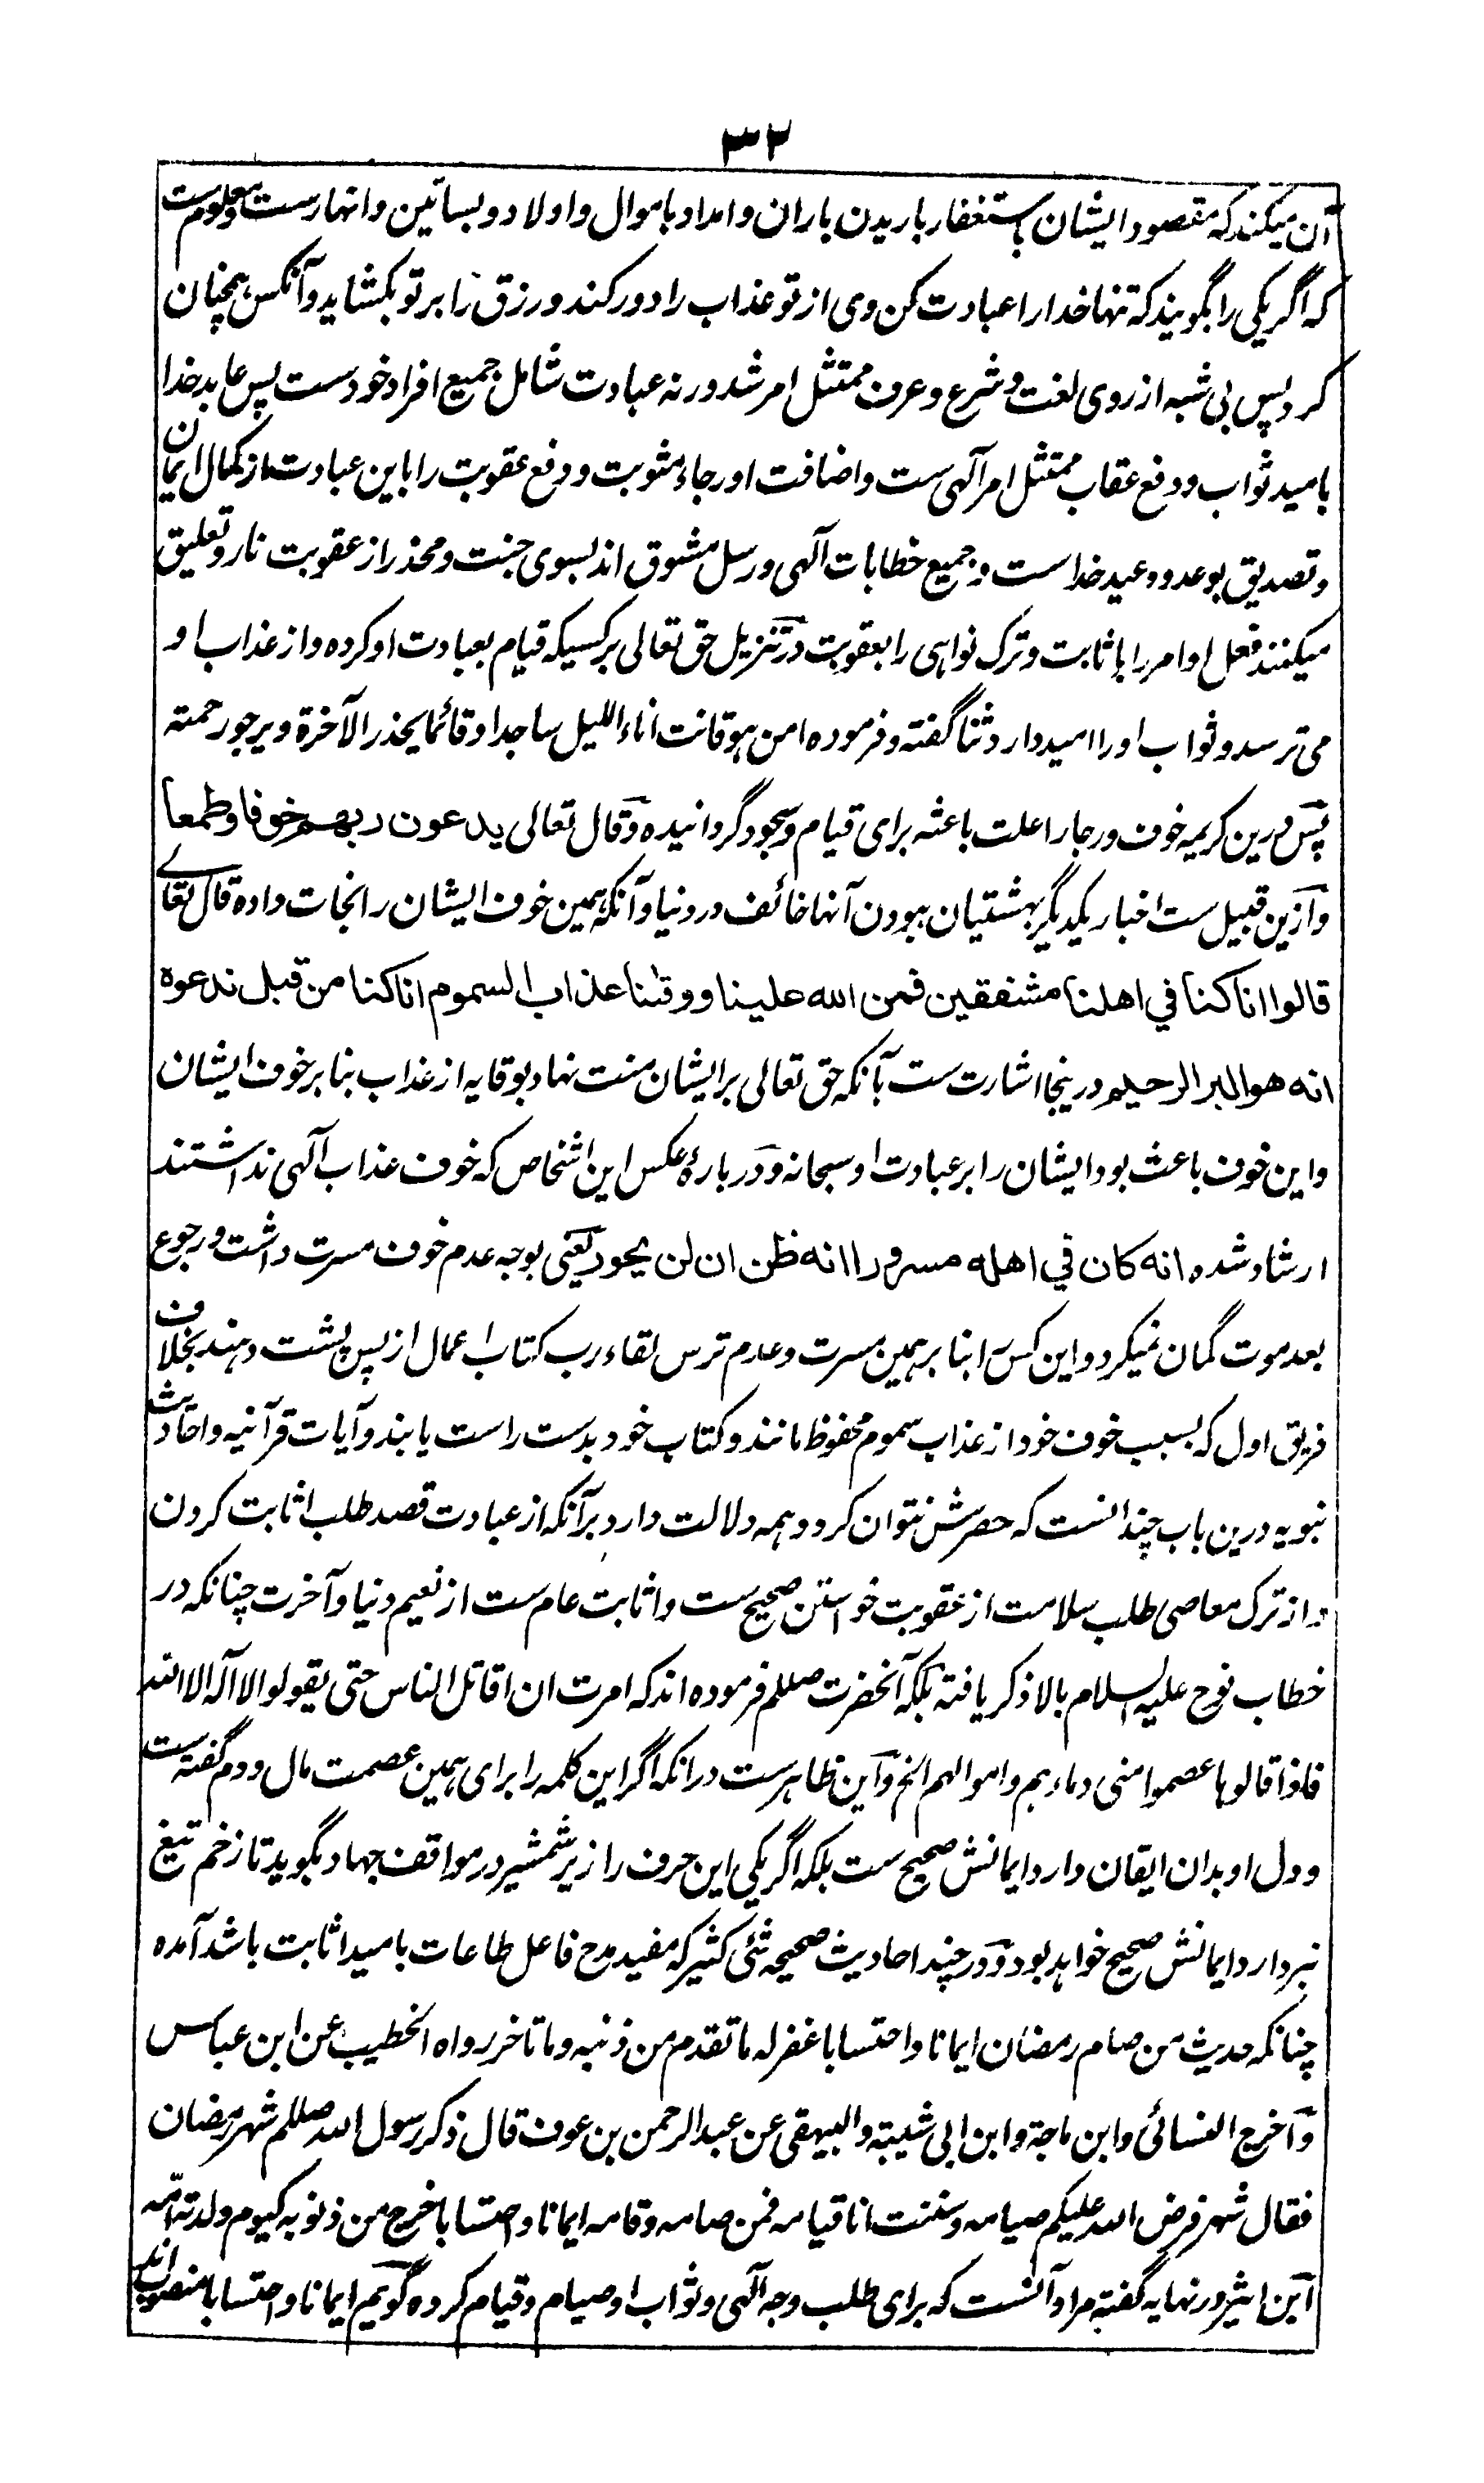 ٣٢
آن میکند که مقصود ایشان باستغفار باریدن باران و امداد باموال و اولاد و بساتین و انهارست و معلوم ست
که اگر یکی را بگویند که تنها خدا را عبادت کن وی از تو عذاب را دور کند و رزق را بر تو بکشاید و آنکس همچنان
کرد پس بی شبه از روی لغت و شرع و عرف ممتثل امر شد ورنه عبادت شامل جمیع افراد خودست پس عابد خدا
بامید ثواب و دفع عقاب ممتثل امر آلهی ست و اضافت او رجاء مثوبت و دفع عقوبت را باین عبادت از کمال ایمان
و تصدیق بوعد و وعید خداست و جمیع خطابات آلهی و رسل مشوق اند بسوی جنت و محذر از عقوبت نار و تعلیق
میکنند فعل اوامر را باثابت و ترک نواهی را بعقوبت و در تنزیل حق تعالی بر کسیکه قیام بعبادت او کرده و از عذاب او
می ترسد و ثواب او را امید دارد ثنا گفته و فرموده امن هو قانت اناء اللیل ساجدا و قائما یحذر الآخرة و یرجو رحمته
پس درین کریمه خوف و رجا را علت باعثه برای قیام و سجود گردانیده و قال تعالی یدعون ربهم خوفا و طمعا
و ازین قبیل ست اخبار یکدیگر بهشتیان ببودن آنها خائف در دنیا و آنکه همین خوف ایشان را نجات داده قال تعالے
قالوا انا كنا في اهلنا مشفقين فمن الله علينا ووقنا عذاب السموم انا كنا من قبل ندعوه
انه هو البر الرحيم درینجا اشارت ست بآنکه حق تعالی بر ایشان منت نهاد بوقایه از عذاب بنا بر خوف ایشان
و این خوف باعث بود ایشان را بر عبادت او سبحانه و در بارهٔ عکس این اشخاص که خوف عذاب آلهی نداشتند
ارشاد شده انه كان في اهله مسرورا انه ظن ان لن يحور یعنی بوجه عدم خوف مسرت داشت و رجوع
بعد موت گمان نمیکرد و این کس را بنا بر همین مسرت و عدم ترس لقاء رب کتاب اعمال از پس پشت دهند بخلاف
فریق اول که بسبب خوف خود از عذاب سموم محفوظ مانند و کتاب خود بدست راست یابند و آیات قرآنیه و احادیث
نبویه درین باب چندانست که حصرش نتوان کرد و همه دلالت دارد برآنکه از عبادت قصد طلب اثابت کردن
و از ترک معاصی طلب سلامت از عقوبت خواستن صحیح ست و اثابت عام ست از نعیم دنیا و آخرت چنانکه در
خطاب نوح علیه السلام بالا ذکر یافته بلکه آنحضرت صللم فرموده اند که امرت ان اقاتل الناس حتی یقولوا لا آله الا الله
فاذا قالوها عصموا منی دماءهم و اموالهم الخ و این ظاهرست درانکه اگر این کلمه را برای همین عصمت مال و دم گفته ست
و دل او بدان ایقان دارد ایمانش صحیح ست بلکه اگر یکی این حرف را زیر شمشیر در مواقف جهاد بگوید تا زخم تیغ
نبردارد ایمانش صحیح خواهد بود و در چند احادیث صحیحه شئی کثیر که مفید مدح فاعل طاعات بامید اثابت باشد آمده
چنانکه حدیث من صام رمضان ایمانا و احتسابا غفر له ما تقدم من ذنبه و ما تاخر رواه الخطیب عن ابن عباس
و اخرج النسائی و ابن ماجة و ابن ابی شیبة و البیهقی عن عبدالرحمن بن عوف قال ذکر رسول الله صللم شهر رمضان
فقال شهر فرض الله علیکم صیامه و سننت انا قیامه فمن صامه و قامه ایمانا و احتسابا خرج من ذنوبه کیوم ولدته امه
ابن اثیر در نهایه گفته مراد آنست که برای طلب وجه آلهی و ثواب او صیام و قیام کرده گویم ایمانا و احتسابا منصوب اند